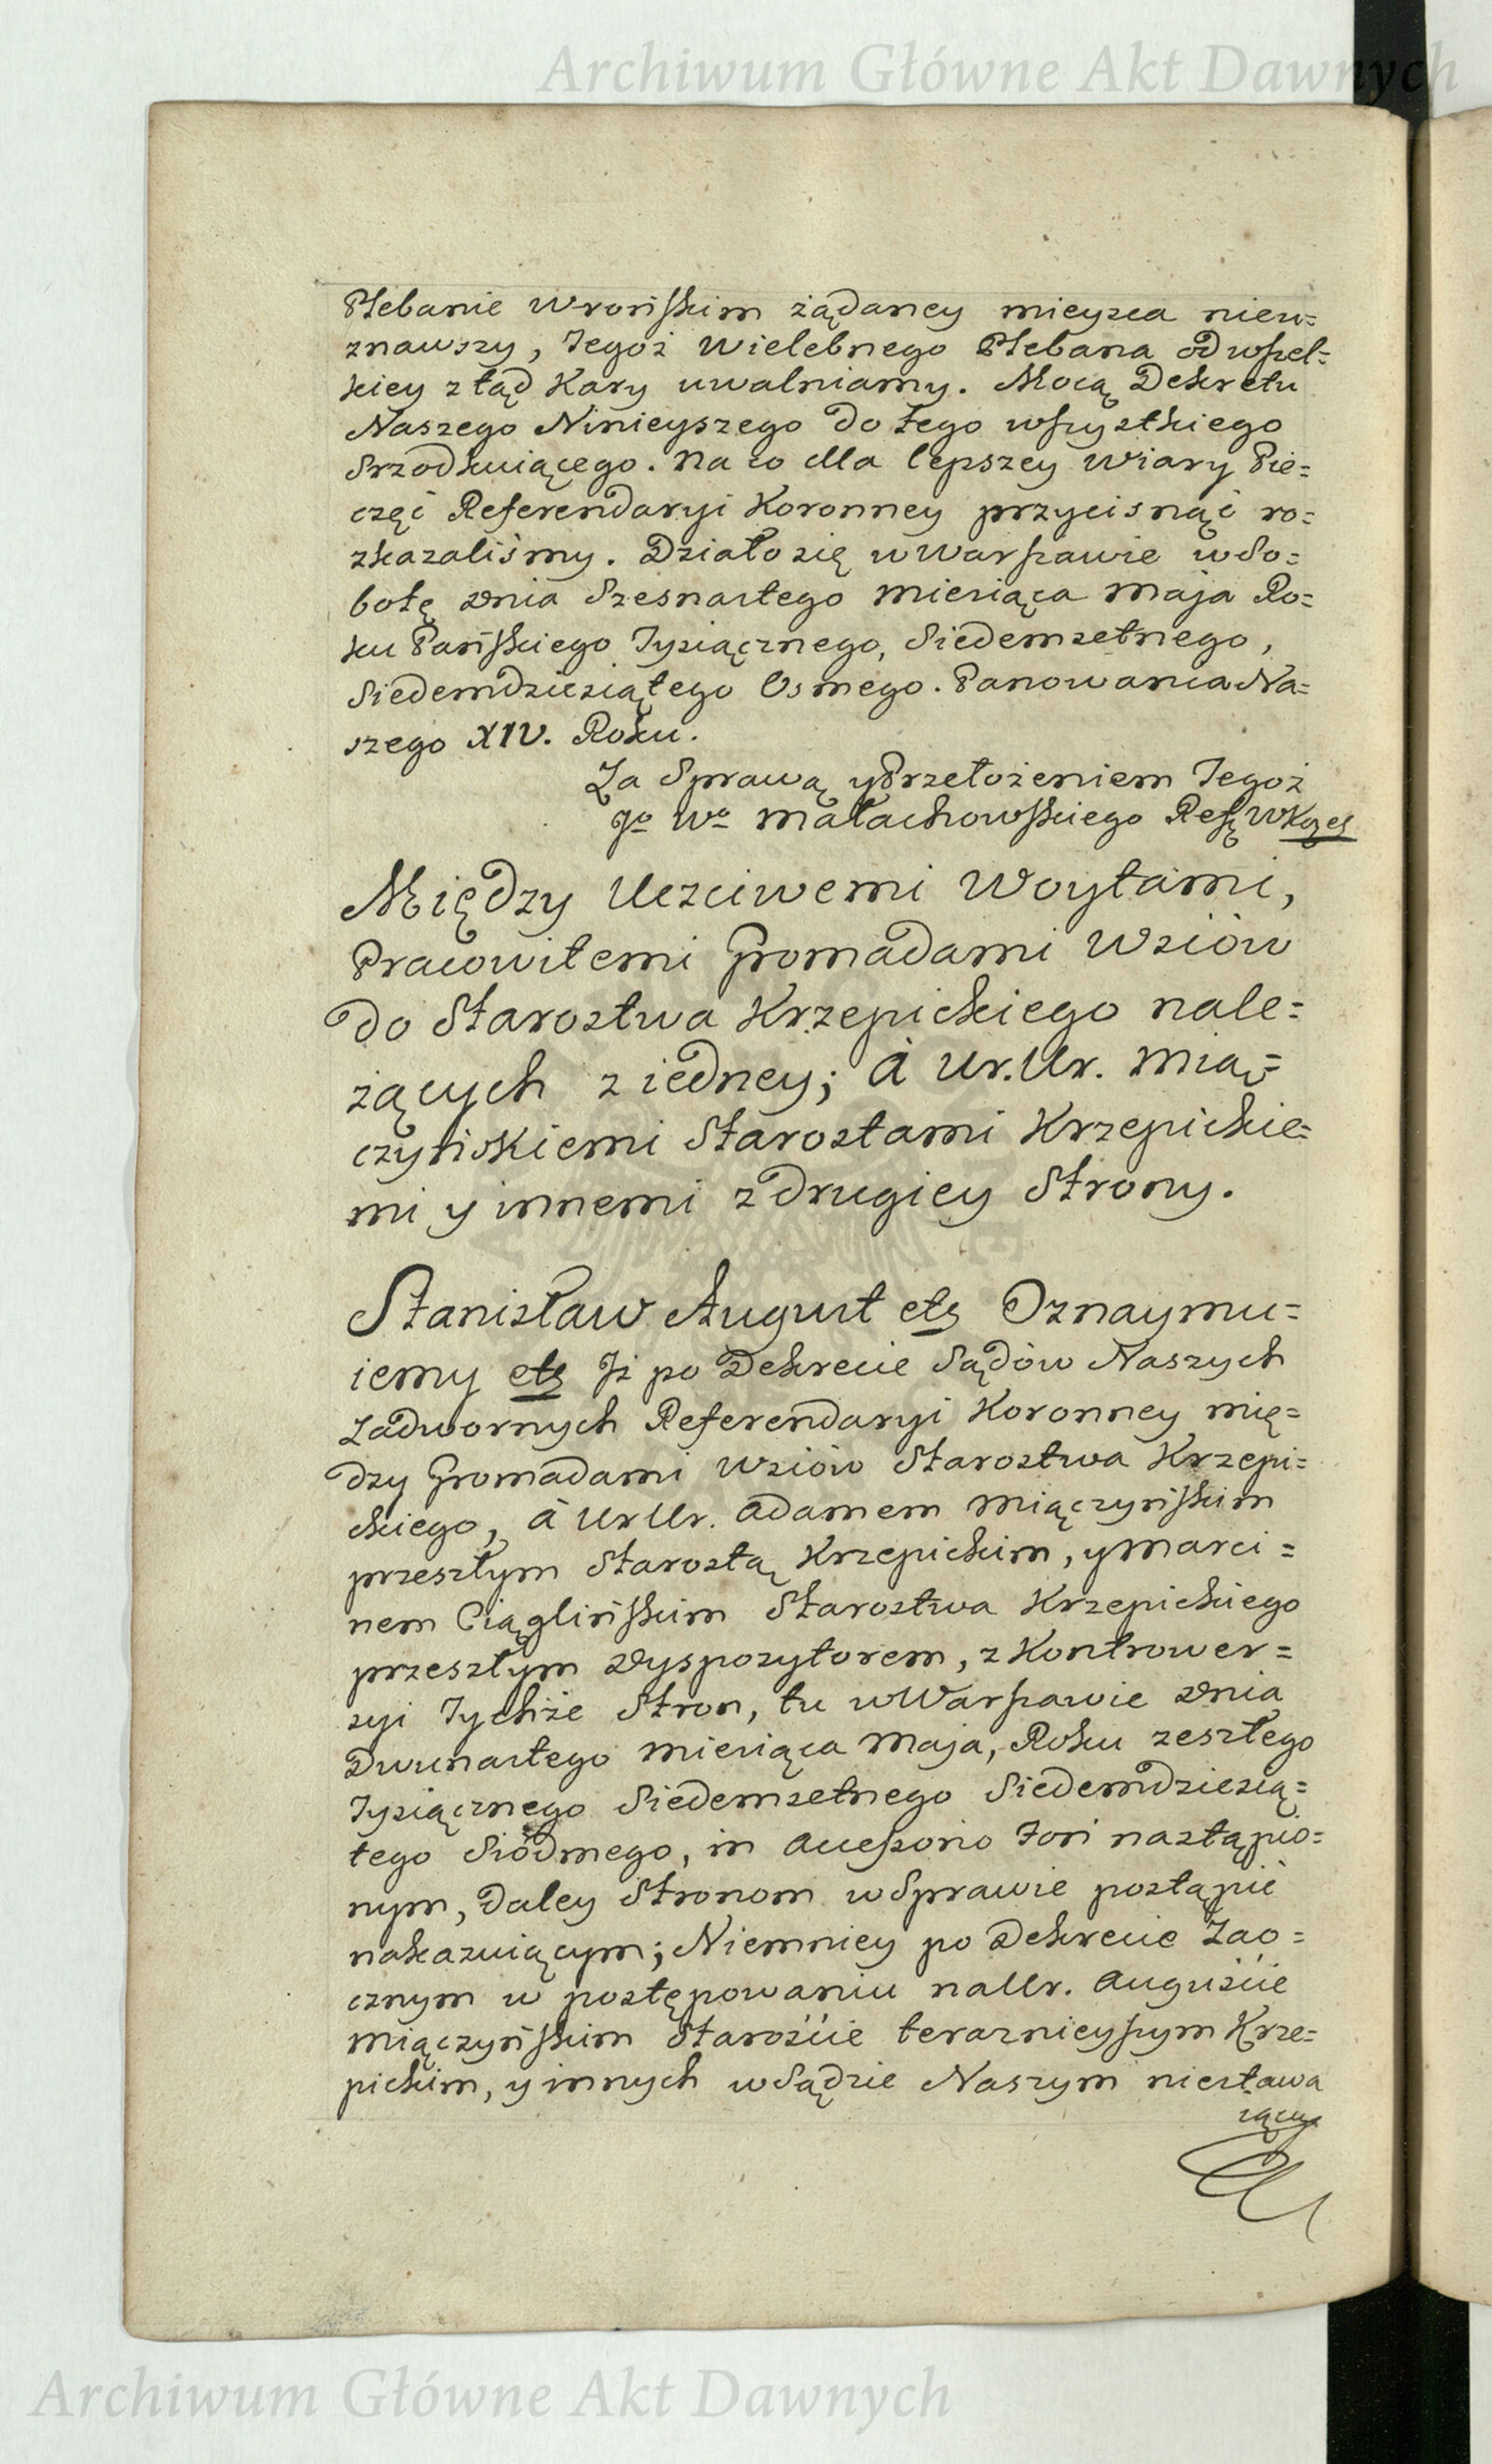 Archiwum Główne Akt Dawnych
Plebanie Wrońskim żądaney mieysca nieu=
znawszy, Tegoż Wielebnego Plebana od wszel=
kiey ztąd Kary uwalniamy. Mocą Dekretu
Naszego Ninieyszego do tego wszystkiego
srzodkuiącego. Na co dla lepszey Wiary Pie=
częć Referendaryi Koronney przycisnąć ro=
zkazaliśmy. Działo się w Warszawie w So=
botę dnia Szesnastego Miesiąca Maja Ro=
ku Pańskiego Tysiącznego, Siedemsetnego,
Siedemdziesiątego Osmego. Panowania Na=
szego XIV. Roku.
Za Sprawą y Przełożeniem Tegoż
Jo Wo Małachowskiego Ref.
Między Uczciwemi Woytami,
Pracowitemi Gromadami Wsiów
do Starostwa Krzepickiego nale=
żących z iedney; à Ur. Ur. Mią=
czyńskiemi Starostami Krzepickie=
mi y innemi z drugiey Strony.
Stanisław August etc Oznaymu=
iemy etc Iż po Dekrecie Sądów Naszych
Zadwornych Referendaryi Koronney mię=
dzy Gromadami Wsiów Starostwa Krzepi=
ckiego, à Ur Ur. Adamem Miączyńskim
przeszłym Starostą Krzepickim, y Marci=
nem Ciąglińskim Starostwa Krzepickiego
przeszłym Dyspozytorem, z Kontrower=
syi Tychże Stron, tu w Warszawie dnia
Dwunastego Miesiąca Maja, Roku zeszłego
Tysiącznego Siedemsetnego Siedemdziesią=
tego Siódmego, in Accessorio Fori nastąpio=
nym, daley Stronom w Sprawie postąpić
nakazuiącym; Niemniey po Dekrecie Zao=
cznym w postępowaniu na Ur. Auguście
Miączyńskim Staroście teraznieyszym Krze=
pickim, y innych w Sądzie Naszym niestawa
iących
Archiwum Główne Akt Dawnych